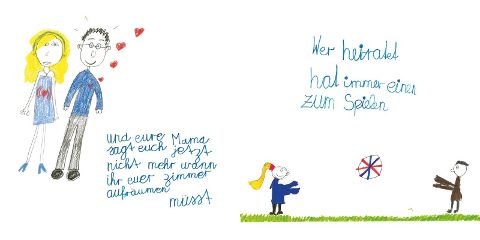 und eure Mama
sagt euch jetzt
nicht mehr wann
ihr euer zimmer
aufräumen
müsst
Wer heiratet
hat immer einen
zum Spielen